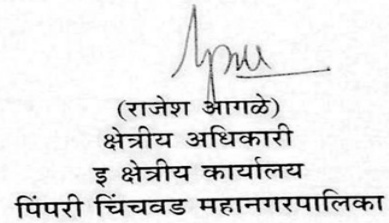 (राजेश आगळे)
क्षेत्रीय अधिकारी
इ क्षेत्रीय कार्यालय
पिंपरी चिंचवड महानगरपालिका